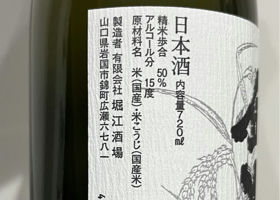 日本酒
内容量720㎖
精米歩合 50%
アルコール分 15度
原材料名 米(国産)・米こうじ(国産米)
製造者 有限会社 堀江酒場
山口県岩国市錦町広瀬六七八一